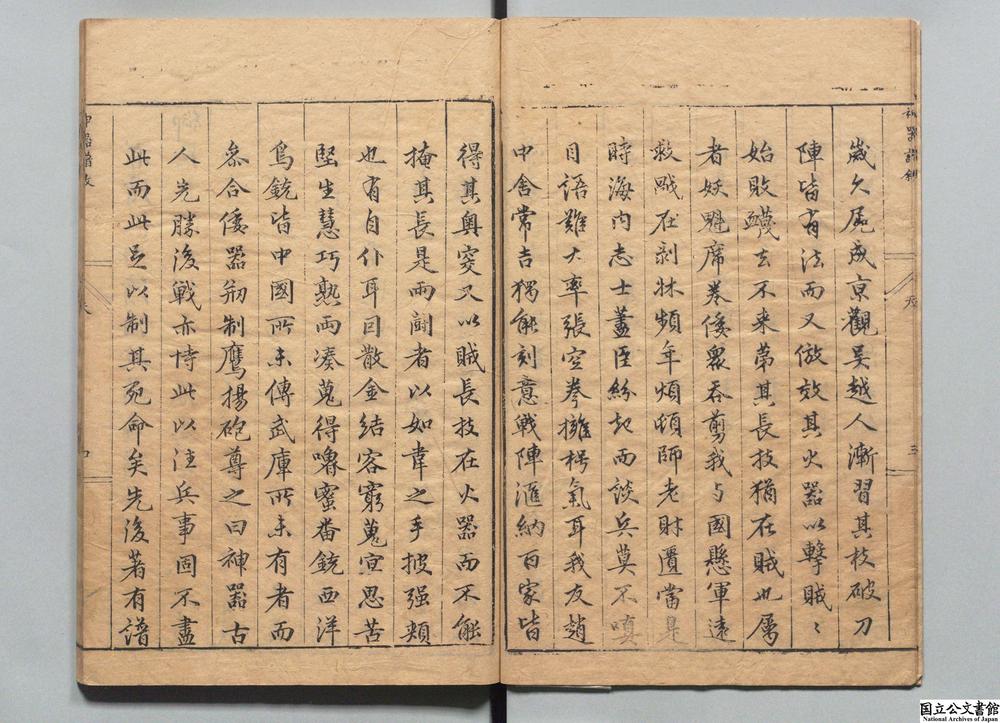 神器譜敘 序 三
歲久屍成京觀吳越人漸習其技破刀
陣皆有法而又倣效其火器以擊賊〻
始敗衄去不來第其長技猶在賊也屬
者妖魁席卷倭眾吞剪我与國懸軍遠
救戰在剥牀頻年煩頓師老財匱當是
時海內志士藎臣紛起而談兵莫不嗔
目語難大率張空拳擁楞氣耳我友趙
中舍常吉獨能刻意戰陣滙納百家皆
得其奧窔又以賊長技在火器而不能
掩其長是兩鬪者以如葦之手披强頰
也有自仆耳囙散金結客窮蒐宣思苦
堅生慧巧熟兩湊蒐得嚕蜜番銃西洋
鳥銃皆中國所未傳武庫所未有者而
叅合倭器刱制鷹揚砲尊之曰神器古
人先勝後戰亦恃此以注兵事固不盡
此而此足以制其死命矣先後著有譜
神器譜敘 序 四
国立公文書館
National Archives of Japan